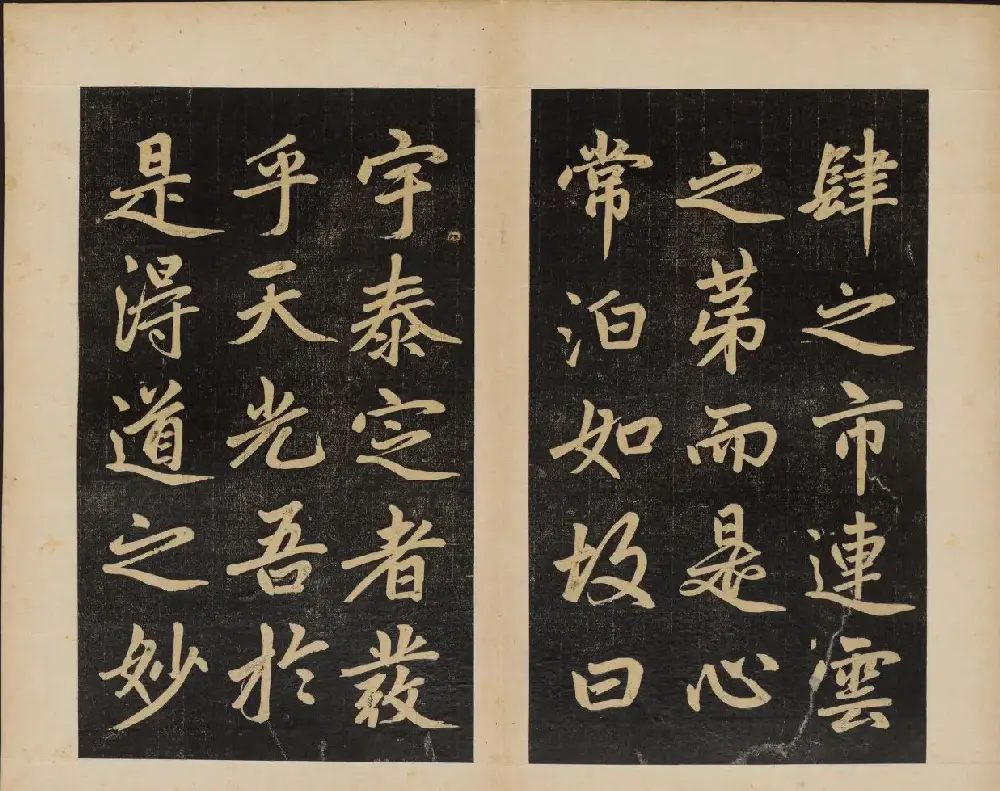 肆之市連雲
之第而是心
常泊如故曰
宇泰定者發
乎天光吾於
是得道之妙